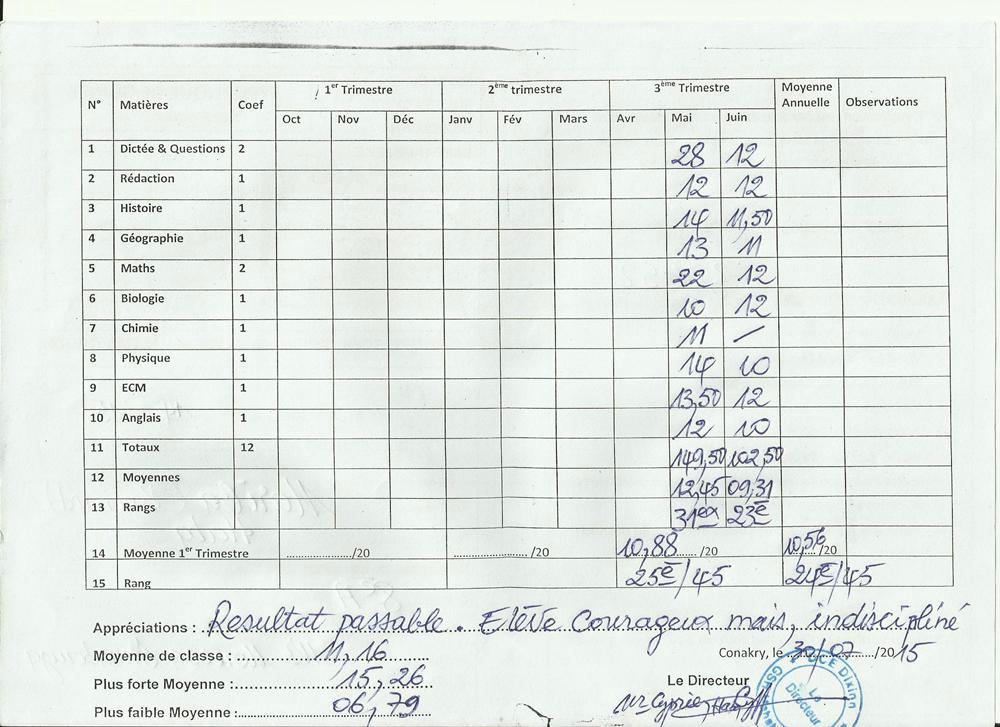 1er Trimestre 2ème trimestre 3ème Trimestre
N° Matières Coef Moyenne Annuelle Observations
Oct Nov Déc Janv Fév Mars Avr Mai Juin
1 Dictée & Questions 2 28 12
2 Rédaction 1 12 12
3 Histoire 1 14 11,50
4 Géographie 1 13 11
5 Maths 2 22 12
6 Biologie 1 10 12
7 Chimie 1 11 —
8 Physique 1 14 10
9 ECM 1 13,50 12
10 Anglais 1 12 10
11 Totaux 12 149,50 102,50
12 Moyennes 12,45 09,31
13 Rangs 31ex 23e
14 Moyenne 1er Trimestre ................/20 ................/20 10,88 /20 10,56 /20
15 Rang 25e/45 24e/45
Appréciations : Resultat passable. Elève Courageux mais, indiscipliné
Moyenne de classe : 11,16 Conakry, le 30/07 /2015
Plus forte Moyenne : 15,26 Le Directeur
Plus faible Moyenne : 06,79 Mr Cyprien
DCE Dixin
GSP
Le Directeur